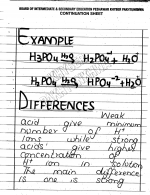 BOARD OF INTERMEDIATE & SECONDARY EDUCATION PESHAWAR KHYBER PAKHTUNKHWA
CONTINUATION SHEET
EXAMPLE
H3PO4 H2O H2PO4-1 + H3O
H2PO4 H2O HPO4-2 + H3O
DIFFERENCES
Weak
acid give minimum
number of H+
ions while strong
acids give higher
concentration of
H+ ion in solution
The main difference
is one is strong